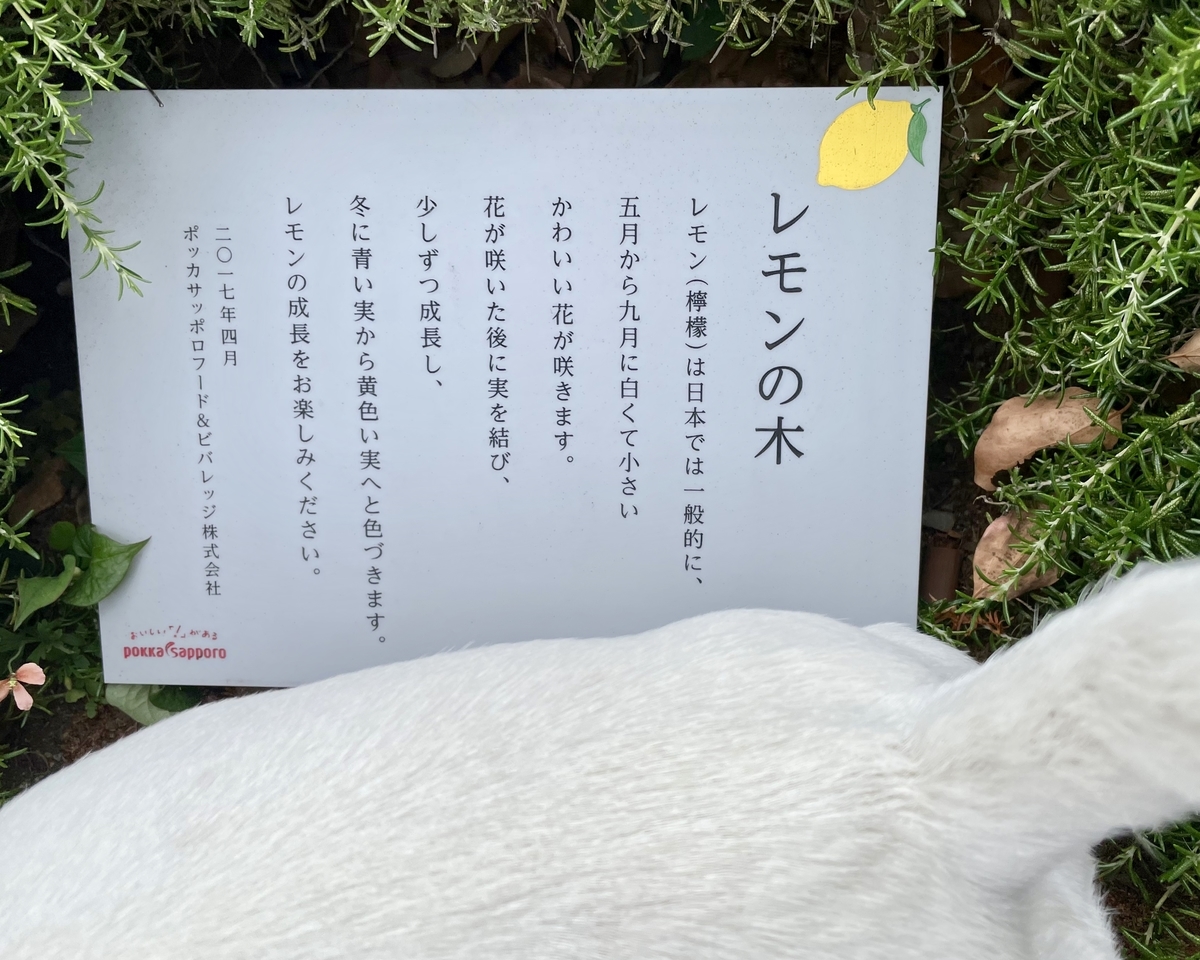 レモンの木
レモン(檸檬)は日本では一般的に、
五月から九月に白くて小さい
かわいい花が咲きます。
花が咲いた後に実を結び、
少しずつ成長し、
冬に青い実から黄色い実へと色づきます。
レモンの成長をお楽しみください。
二〇一七年四月
ポッカサッポロフード&ビバレッジ株式会社
おいしい「!」がある
pokka sapporo